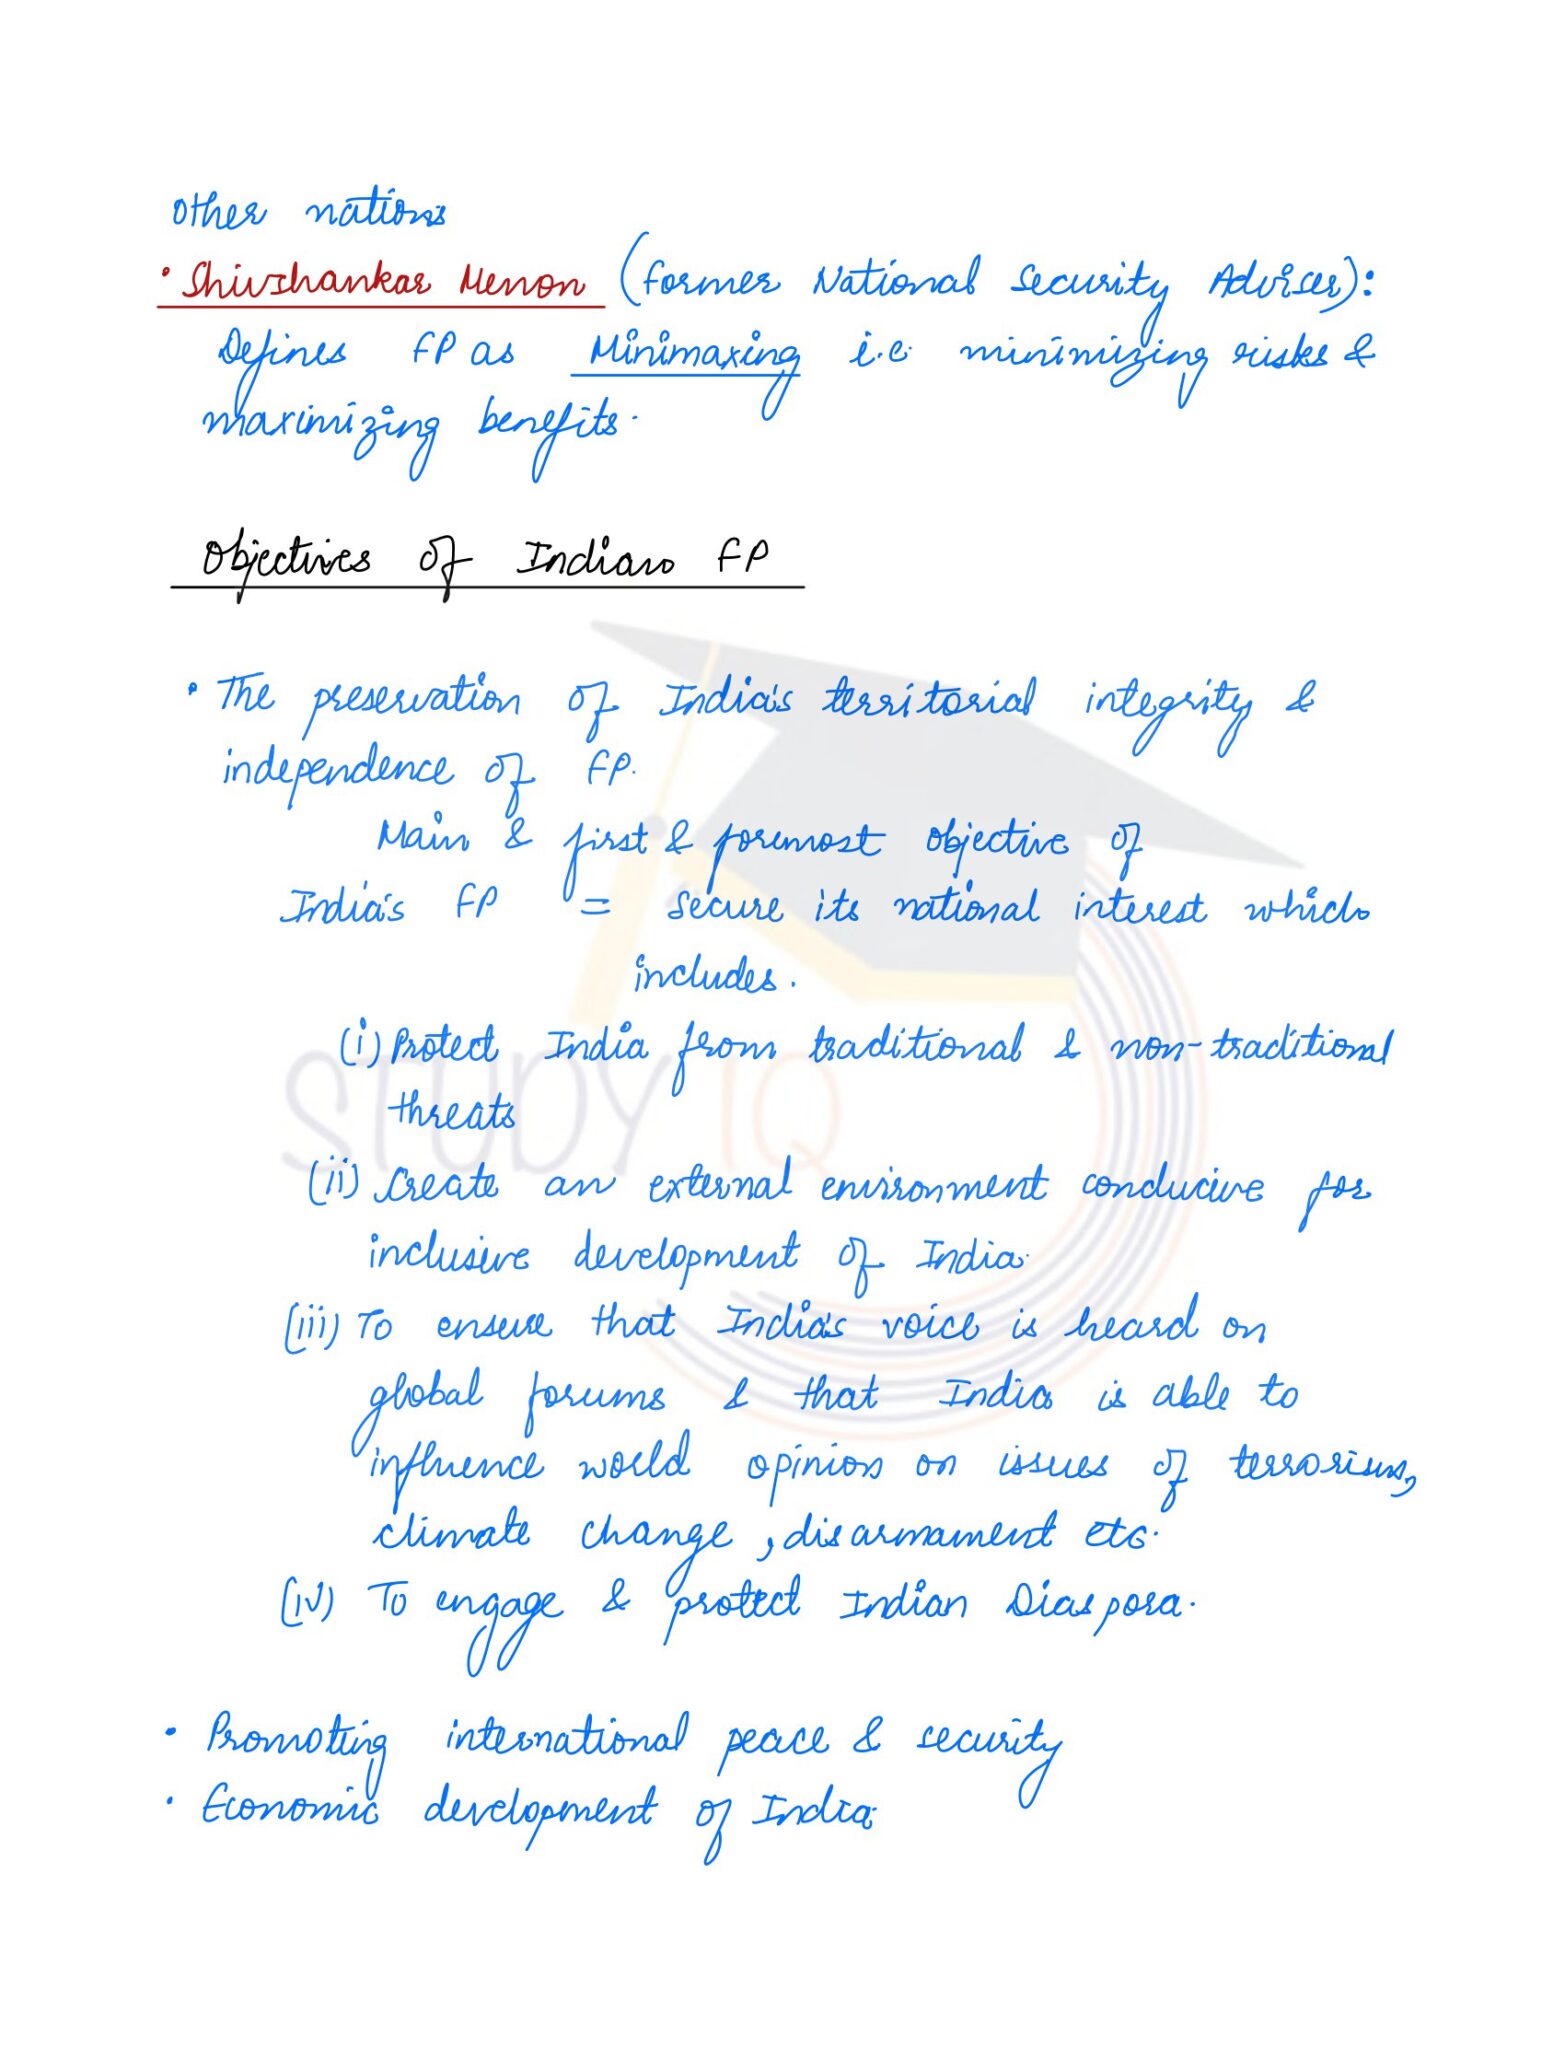 other nations
• Shivshankar Menon (former National Security Adviser):
Defines FP as Minimaxing i.e. minimizing risks &
maximizing benefits.
Objectives of Indian FP
• The preservation of India's territorial integrity &
independence of FP.
Main & first & foremost objective of
India's FP = secure its national interest which
includes.
(i) Protect India from traditional & non-traditional
threats
(ii) Create an external environment conducive for
inclusive development of India.
(iii) To ensure that India's voice is heard on
global forums & that India is able to
influence world opinion on issues of terrorism,
climate change, disarmament etc.
(iv) To engage & protect Indian Diaspora.
• Promoting international peace & security
• Economic development of India.
STUDY IQ